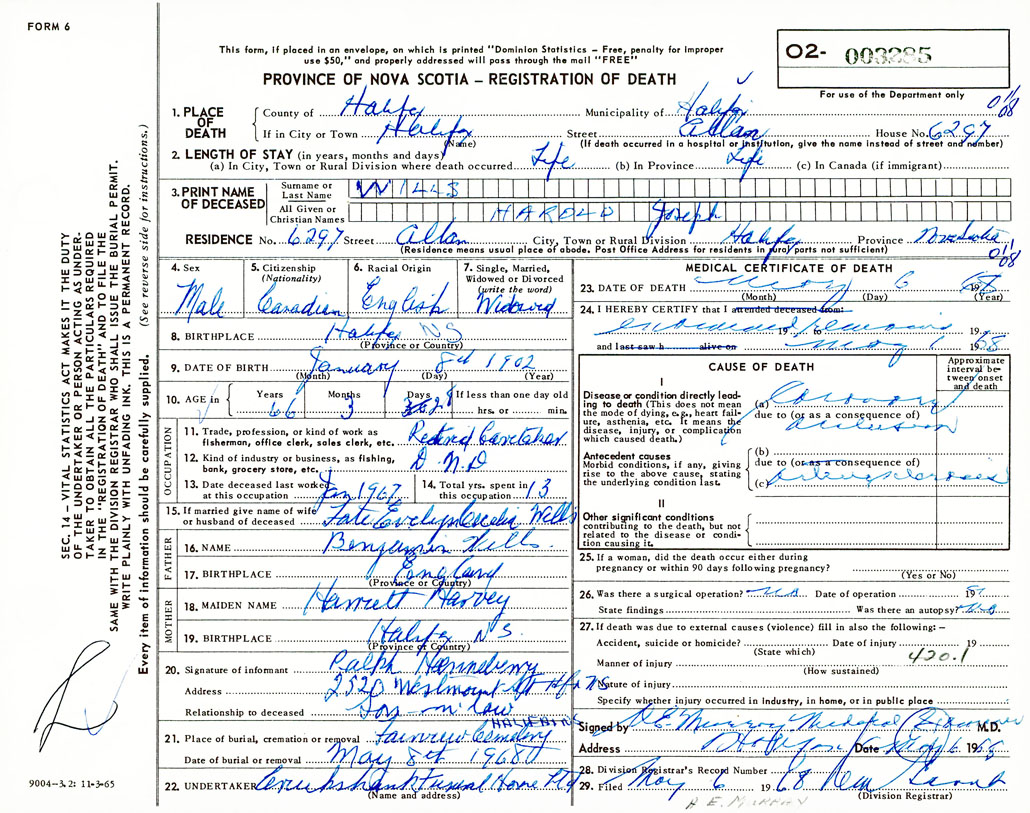 FORM 6
This form, if placed in an envelope, on which is printed "Dominion Statistics - Free, penalty for improper
use $50," and properly addressed will pass through the mail "FREE"
O2- 003285
For use of the Department only
PROVINCE OF NOVA SCOTIA - REGISTRATION OF DEATH
1. PLACE OF DEATH
County of Halifax Municipality of Halifax
If in City or Town Halifax Street Allan House No. 6297
(Name) (If death occurred in a hospital or institution, give the name instead of street and number)
2. LENGTH OF STAY (in years, months and days)
(a) In City, Town or Rural Division where death occurred Life (b) In Province Life (c) In Canada (if immigrant)
3. PRINT NAME OF DECEASED
Surname or Last Name WILLS
All Given or Christian Names HAROLD Joseph
RESIDENCE No. 6297 Street Allan City, Town or Rural Division Halifax Province Nova Scotia
(Residence means usual place of abode. Post Office Address for residents in rural parts not sufficient)
4. Sex Male
5. Citizenship (Nationality) Canadian
6. Racial Origin English
7. Single, Married, Widowed or Divorced (write the word) Widowed
8. BIRTHPLACE Halifax NS
(Province or Country)
9. DATE OF BIRTH January 8th 1902
(Month) (Day) (Year)
10. AGE in Years 66 Months 3 Days 28 If less than one day old hrs. or min.
OCCUPATION
11. Trade, profession, or kind of work as fisherman, office clerk, sales clerk, etc. Retired Caretaker
12. Kind of industry or business, as fishing, bank, grocery store, etc. D.N.D
13. Date deceased last worked at this occupation Jan 1967
14. Total yrs. spent in this occupation 13
15. If married give name of wife or husband of deceased Evelyn Wills
FATHER
16. NAME Benjamin Wills
17. BIRTHPLACE England
(Province or Country)
MOTHER
18. MAIDEN NAME Harriett Harvey
19. BIRTHPLACE Halifax NS.
(Province of Country)
20. Signature of informant Ralph Henneberry
Address 2520 Westmount St Hfx NS
Relationship to deceased Son-in-law
21. Place of burial, cremation or removal Fairview Cemetery HALIFAX NS
Date of burial or removal May 8th 1968
22. UNDERTAKER Cruikshank Funeral Home Ltd
(Name and address)
MEDICAL CERTIFICATE OF DEATH
23. DATE OF DEATH May 6 1968
(Month) (Day) (Year)
24. I HEREBY CERTIFY that I attended deceased from:
examined remains 19
and last saw h alive on May 1968
CAUSE OF DEATH
Approximate interval between onset and death
I
Disease or condition directly leading to death (This does not mean the mode of dying, e.g., heart failure, asthenia, etc. It means the disease, injury, or complication which caused death.)
(a) Coronary
due to (or as a consequence of)
occlusion
Antecedent causes
Morbid conditions, if any, giving rise to the above cause, stating the underlying condition last.
(b)
due to (or as a consequence of)
(c) Arteriosclerosis
II
Other significant conditions
contributing to the death, but not related to the disease or condition causing it.
25. If a woman, did the death occur either during
pregnancy or within 90 days following pregnancy?
(Yes or No)
26. Was there a surgical operation? No Date of operation 19
State findings Was there an autopsy? No
27. If death was due to external causes (violence) fill in also the following: -
Accident, suicide or homicide? Date of injury 19
(State which) 420.1
Manner of injury
(How sustained)
Nature of injury
Specify whether injury occurred in Industry, in home, or in public place
Signed by A.E. Murray Medical Examiner M.D.
Address Halifax Date May 6 1968
28. Division Registrar's Record Number
29. Filed May 6 1968
(Division Registrar)
A E. MURRAY
SEC. 14 - VITAL STATISTICS ACT MAKES IT THE DUTY
OF THE UNDERTAKER OR PERSON ACTING AS UNDER-
TAKER TO OBTAIN ALL THE PARTICULARS REQUIRED
IN THE "REGISTRATION OF DEATH" AND TO FILE THE
SAME WITH THE DIVISION REGISTRAR WHO SHALL ISSUE THE BURIAL PERMIT.
WRITE PLAINLY WITH UNFADING INK. THIS IS A PERMANENT RECORD.
Every item of information should be carefully supplied. (See reverse side for instructions.)
9004-3.2: 11-3-65